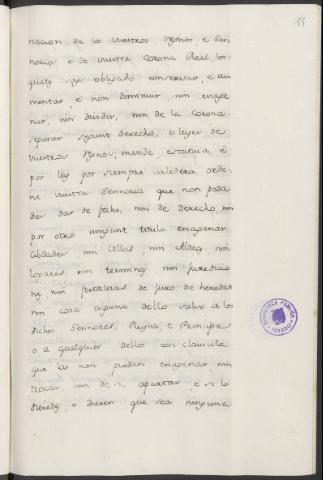 15
nacion de lo vuestros Rgnos, e Sen
norios, e de vuestra Corona Real, los
quales sois obligado conservar, e au
mentar, e non diminuir nin enage
nar, nin dividir, nin de la Corona
separar segunt derecho, e leyes de
vuestros Rgnos, mande, estatuia, e
por ley por siempre valedera orde
ne vuestra Sennoria que non poda
des dar de fecho, nin de derecho nin
por otro ningunt titulo enagenar
Cibdades nin Villas, nin Aldeas nin
logares, nin terminos nin juredicio
nes nin fortalezas de juro de heredat
nin cosa alguna dello salvo a los
dichos Sennores, Reyna e Principe
o a qualquier dellos con clausula
que las non puedan enagenar nin
trocar, nin de si, apartar e si lo
dieredes, o dieren que sea ninguna
BIBLIOTECA PÚBLICA
TOLEDO